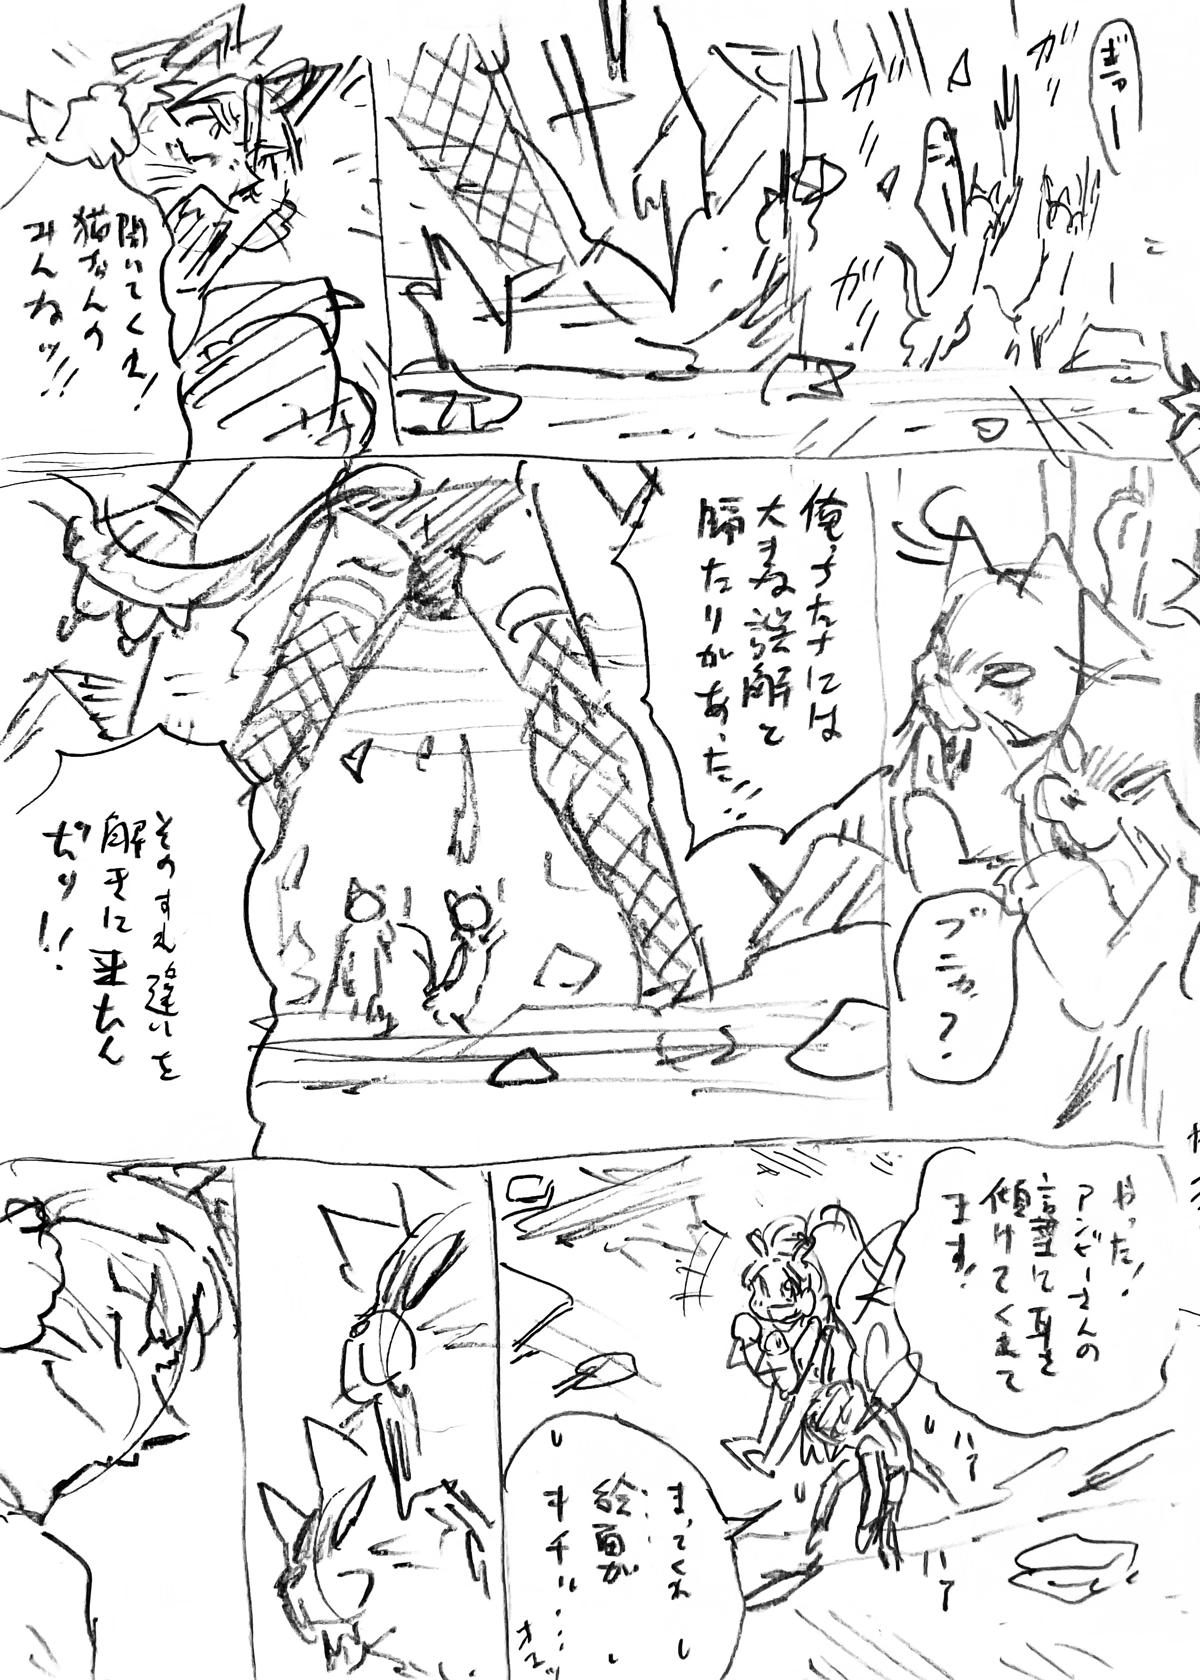 ぎっー
ガッ
ガッ
ガッ
聞いてくれ!
猫さんの
みんなッ!!
ブニャ?
俺っちたちには
大きな誤解と
隔たりがあった!!
そのすれ違いを
解きに来たん
だッ!!
やった!
アンビーさんの
言葉に耳を
傾けてくれて
ます!
まってくれ
絵面が